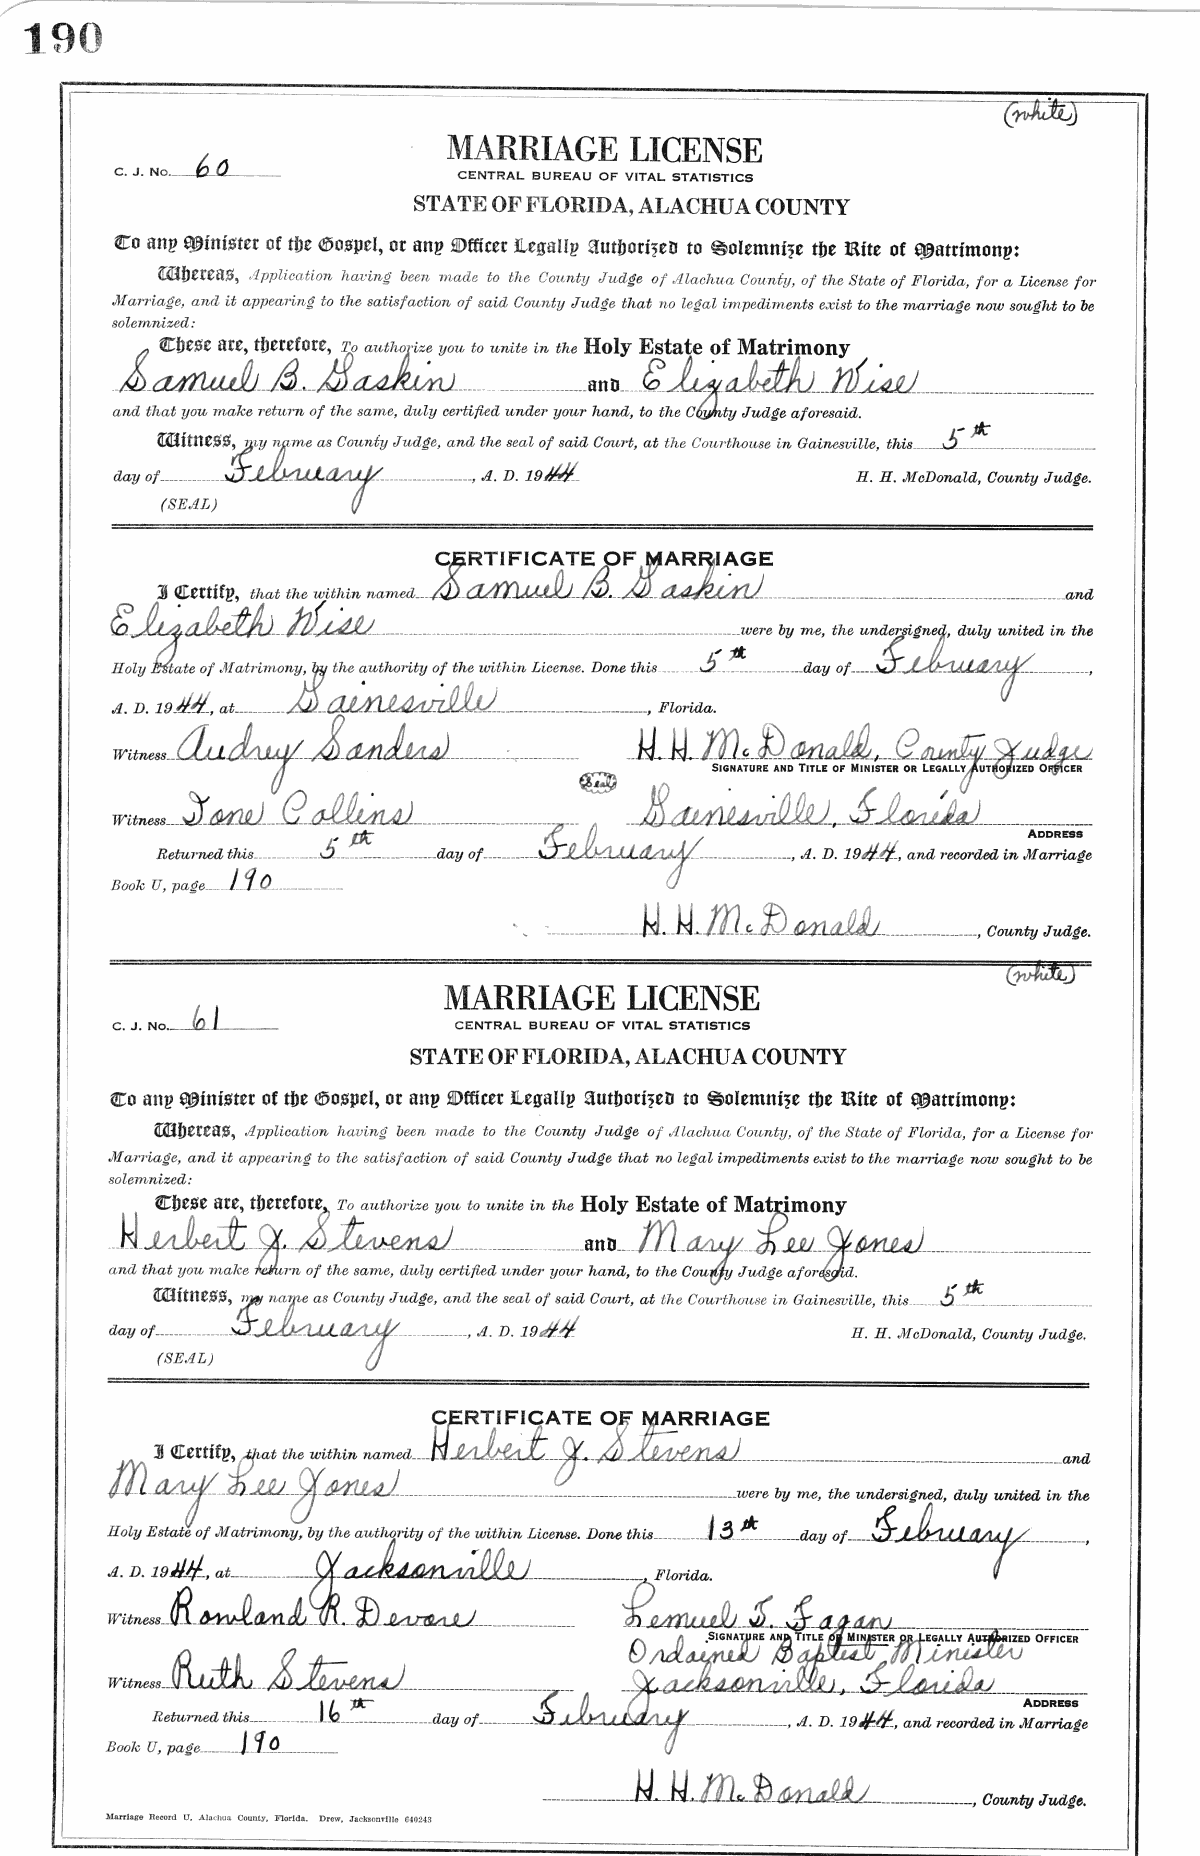 190
(white)
MARRIAGE LICENSE
C. J. No. 60
CENTRAL BUREAU OF VITAL STATISTICS
STATE OF FLORIDA, ALACHUA COUNTY
To any Minister of the Gospel, or any Officer Legally Authorized to Solemnize the Rite of Matrimony:
Whereas, Application having been made to the County Judge of Alachua County, of the State of Florida, for a License for
Marriage, and it appearing to the satisfaction of said County Judge that no legal impediments exist to the marriage now sought to be
solemnized:
These are, therefore, To authorize you to unite in the Holy Estate of Matrimony
Samuel B. Gaskin and Elizabeth Wise
and that you make return of the same, duly certified under your hand, to the County Judge aforesaid.
Witness, my name as County Judge, and the seal of said Court, at the Courthouse in Gainesville, this 5th
day of February, A. D. 1944 H. H. McDonald, County Judge.
(SEAL)
CERTIFICATE OF MARRIAGE
I Certify, that the within named Samuel B. Gaskin and
Elizabeth Wise were by me, the undersigned, duly united in the
Holy Estate of Matrimony, by the authority of the within License. Done this 5th day of February,
A. D. 1944, at Gainesville, Florida.
Witness Audrey Sanders H. H. McDonald, County Judge
SIGNATURE AND TITLE OF MINISTER OR LEGALLY AUTHORIZED OFFICER
Seal
Witness Ione Collins Gainesville, Florida
ADDRESS
Returned this 5th day of February, A. D. 1944, and recorded in Marriage
Book U, page 190
H. H. McDonald, County Judge.
(white)
MARRIAGE LICENSE
C. J. No. 61
CENTRAL BUREAU OF VITAL STATISTICS
STATE OF FLORIDA, ALACHUA COUNTY
To any Minister of the Gospel, or any Officer Legally Authorized to Solemnize the Rite of Matrimony:
Whereas, Application having been made to the County Judge of Alachua County, of the State of Florida, for a License for
Marriage, and it appearing to the satisfaction of said County Judge that no legal impediments exist to the marriage now sought to be
solemnized:
These are, therefore, To authorize you to unite in the Holy Estate of Matrimony
Herbert J. Stevens and Mary Lee Jones
and that you make return of the same, duly certified under your hand, to the County Judge aforesaid.
Witness, my name as County Judge, and the seal of said Court, at the Courthouse in Gainesville, this 5th
day of February, A. D. 1944 H. H. McDonald, County Judge.
(SEAL)
CERTIFICATE OF MARRIAGE
I Certify, that the within named Herbert J. Stevens and
Mary Lee Jones were by me, the undersigned, duly united in the
Holy Estate of Matrimony, by the authority of the within License. Done this 13th day of February,
A. D. 1944, at Jacksonville, Florida.
Witness Rowland R. Devore Lemuel T. Fagan
SIGNATURE AND TITLE OF MINISTER OR LEGALLY AUTHORIZED OFFICER
Ordained Baptist Minister
Witness Ruth Stevens Jacksonville, Florida
ADDRESS
Returned this 16th day of February, A. D. 1944, and recorded in Marriage
Book U, page 190
H. H. McDonald, County Judge.
Marriage Record U, Alachua County, Florida. Drew, Jacksonville 640243